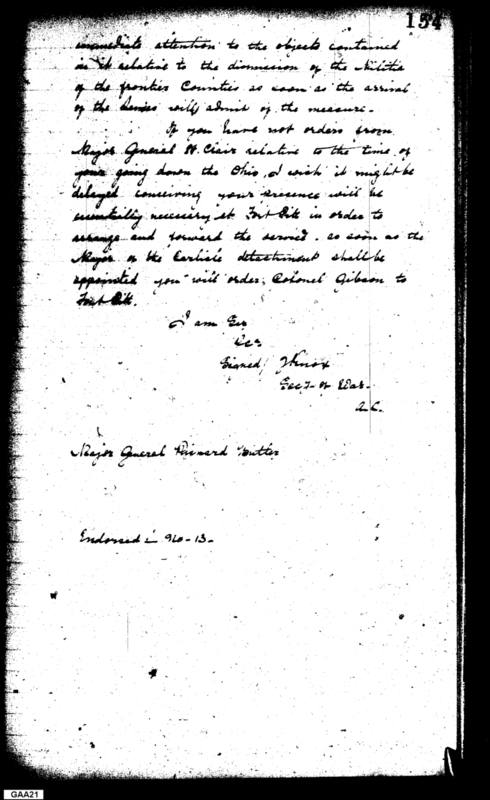 154
immediate attention to the objects contained
in it relative to the dismission of the Militia
of the frontier Counties as soon as the arrival
of the Levies will admit of the measure.
If you have not orders from
Major General St. Clair relative to the time of
your going down the Ohio, I wish it might be
delayed conceiving your presence will be
essentially necessary at Fort Pitt in order to
arrange and forward the service. as soon as the
Major or the Carlisle detachment shall be
appointed you will order, Colonel Gibson to
Fort Pitt.
I am Sir
&c
Signed, HKnox
Secy. of War.
Major General Richard Butler
Endorsed in No-13-
GAA21